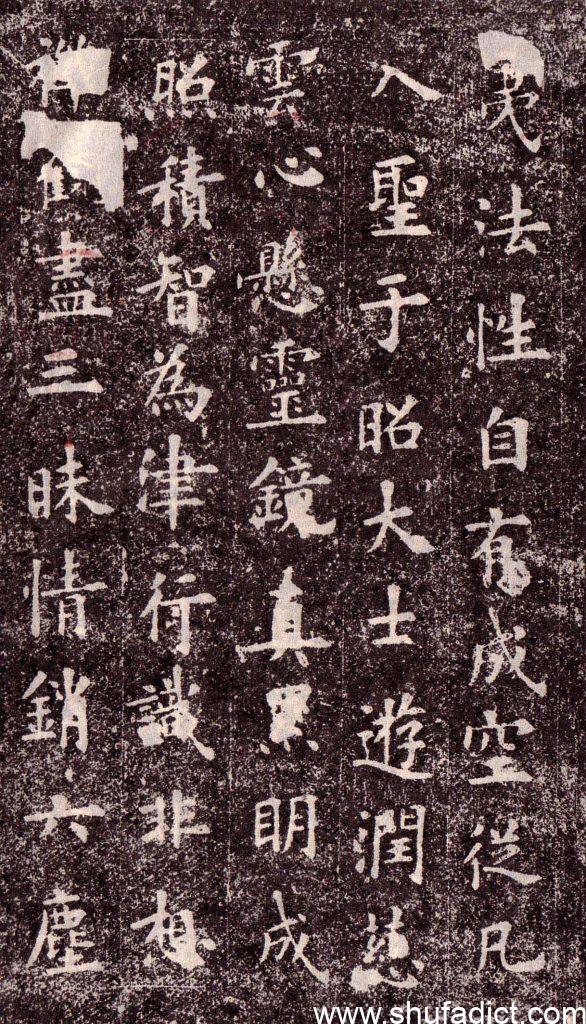 夷法性自有成空從凡
入聖于昭大士遊潤慈
雲心懸靈鏡真累明成
照積智為津行識非想
盡三昧情銷六塵
www.shufadict.com